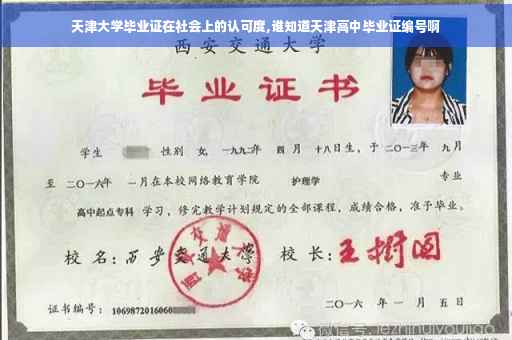 天津大学毕业证在社会上的认可度,谁知道天津高中毕业证编号啊
西安交通大学
毕业证书
学生 性别 女, 一九九二年 四月十八日生, 于二〇一三年 九月
至 二〇一六年 一月在本校网络教育学院 护理学 专业
高中起点专科 学习, 修完教学计划规定的全部课程, 成绩合格, 准予毕业。
校名: 西安交通大学 校长: 王树国
西安交通大学
证书编号: 1069872016060
二〇一六年一月五日
微信号: jezhihuiyoujiao